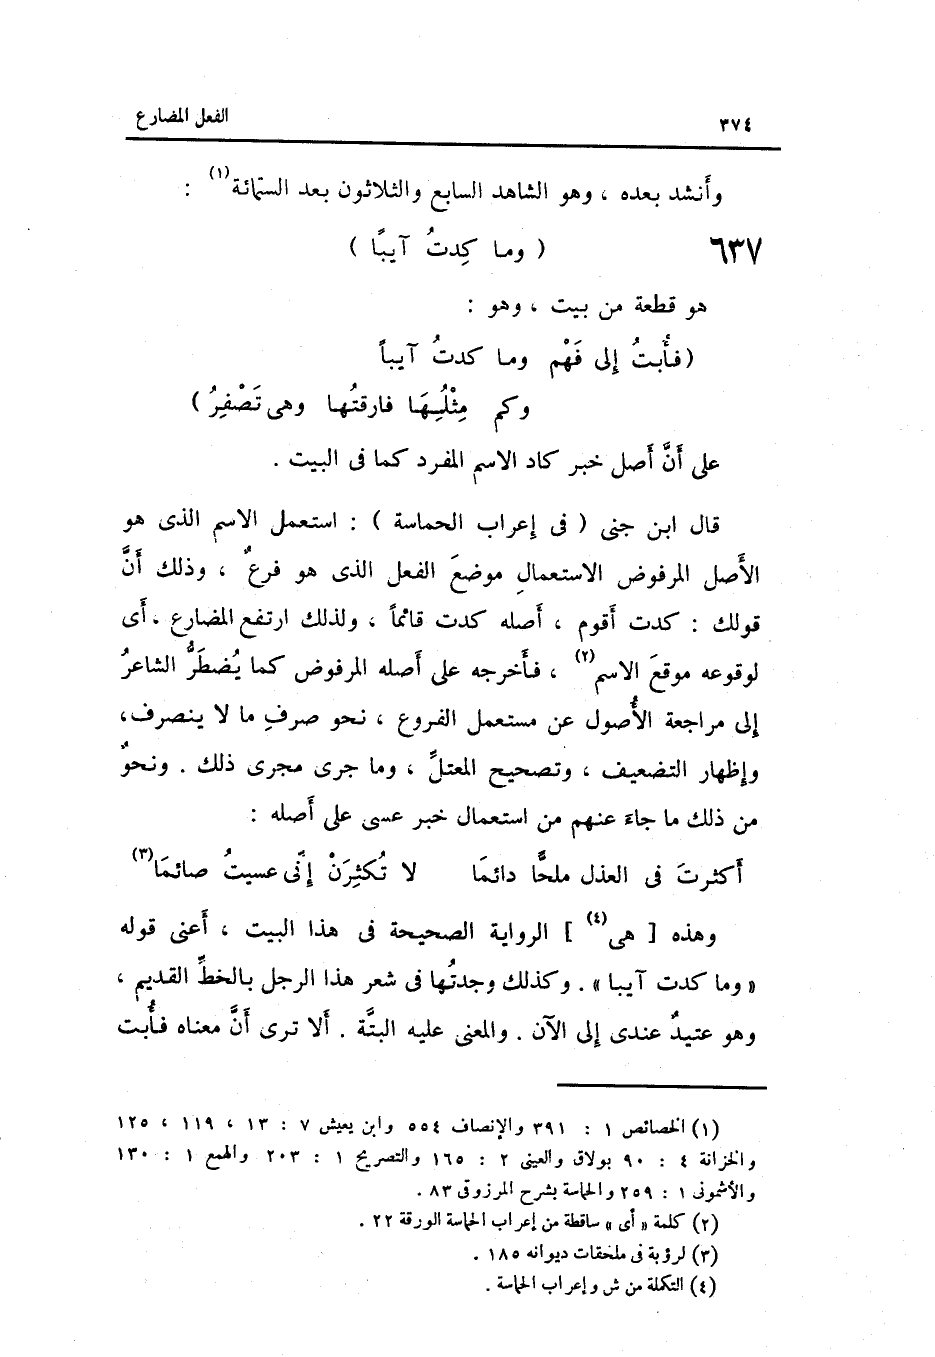 ٣٧٤ الفعل المضارع
وأَنشد بعده ، وهو الشاهد السابع والثلاثون بعد الستمائة(١) :
٦٣٧ ( وما كِدتُ آيبًا )
هو قطعة من بيت ، وهو :
(فأُبتُ إلى فَهْمٍ وما كدتُ آيباً
وكم مِثْلُِهَا فارقتُها وهى تَصْفِرُ )
على أَنَّ أَصل خبر كاد الاسم المفرد كما فى البيت .
قال ابن جنى ( فى إعراب الحماسة ) : استعمل الاسم الذى هو
الأَصل المرفوض الاستعمالِ موضعَ الفعل الذى هو فرعٌ ، وذلك أَنَّ
قولك : كدت أَقوم ، أَصله كدت قائماً ، ولذلك ارتفع المضارع ، أَى
لوقوعه موقعَ الاسم(٢) ، فأَخرجه على أَصله المرفوض كما يُضطَرُّ الشاعرُ
إلى مراجعة الأُصول عن مستعمل الفروع ، نحو صرفِ ما لا ينصرف،
وإظهار التضعيف ، وتصحيح المعتلِّ ، وما جرى مجرى ذلك . ونحوٌ
من ذلك ما جاءَ عنهم من استعمال خبر عسى على أَصله :
أَكثرتَ فى العذل ملحًّا دائمَا لا تُكثِرَنْ إنِّى عسيتُ صائمَا(٣)
وهذه [ هى(٤) ] الرواية الصحيحة فى هذا البيت ، أَعنى قوله
« وما كدت آيبا » . وكذلك وجدتُها فى شعر هذا الرجل بالخطِّ القديم ،
وهو عتيدٌ عندى إلى الآن . والمعنى عليه البتَّة . أَلا ترى أَنَّ معناه فأُبت
(١) الخصائص ١ : ٣٩١ والإنصاف ٥٥٤ وابن يعيش ٧ : ١٣ ، ١١٩ ، ١٢٥
والخزانة ٤ : ٩٠ بولاق والعينى ٢ : ١٦٥ والتصريح ١ : ٢٠٣ والهمع ١ : ١٣٠
والأشمونى ١ : ٢٥٩ والحماسة بشرح المرزوقى ٨٣ .
(٢) كلمة « أى » ساقطة من إعراب الحماسة الورقة ٢٢ .
(٣) لرؤبة فى ملحقات ديوانه ١٨٥ .
(٤) التكملة من ش وإعراب الحماسة .